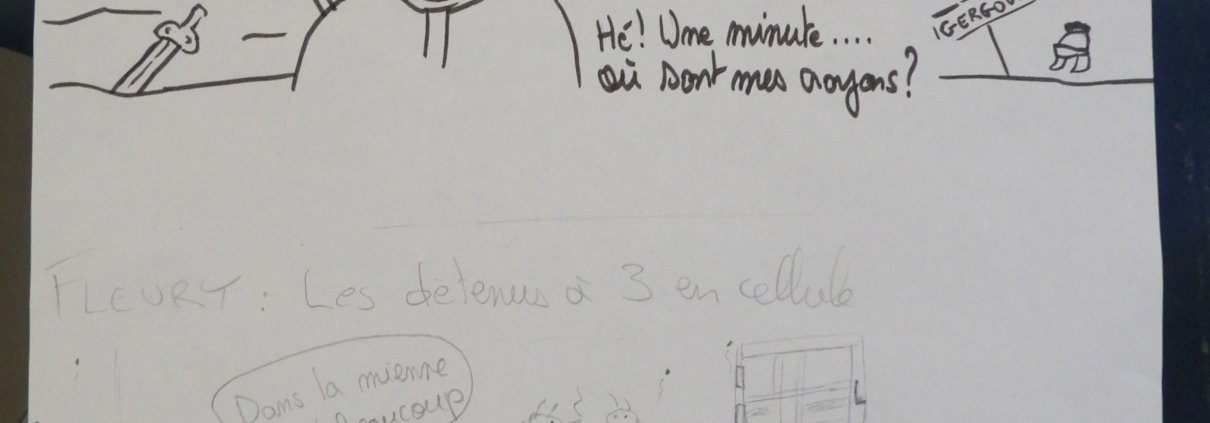 Hé! Une minute....
où sont mes crayons?
IGERGOV
FLEURY : Les détenus à 3 en cellule
Dans la mienne
beaucoup